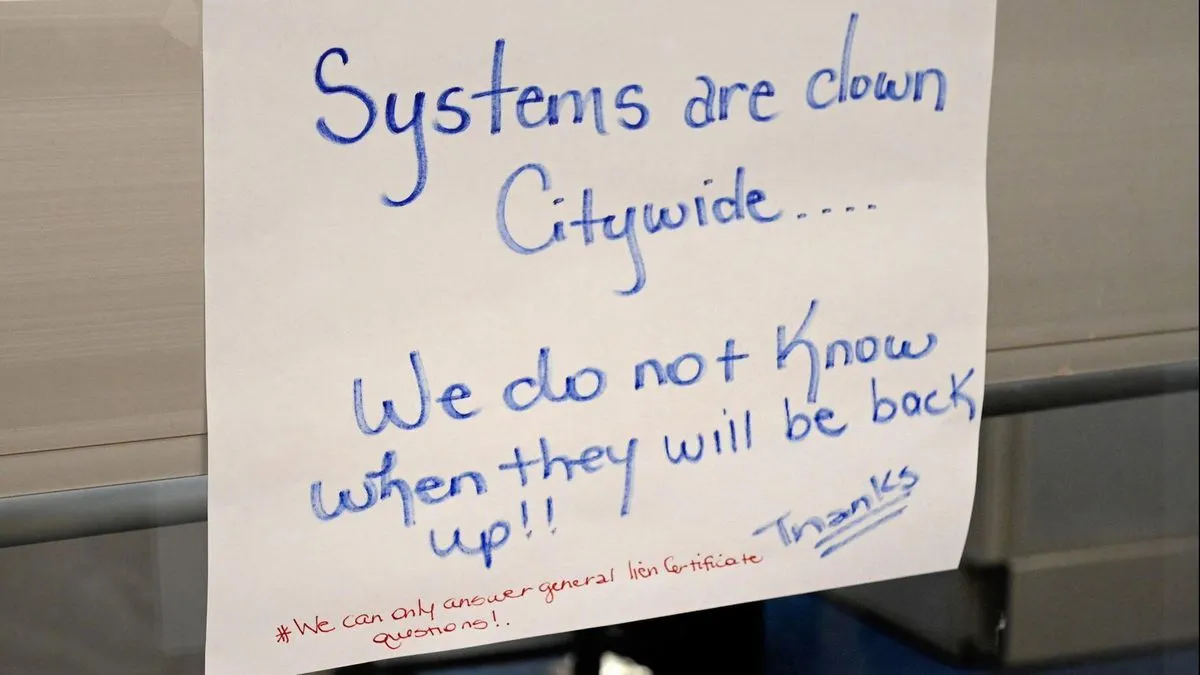 Systems are down
Citywide....
We do not know
when they will be back
up!!
Thanks
#We can only answer general lien Certificate
questions!.